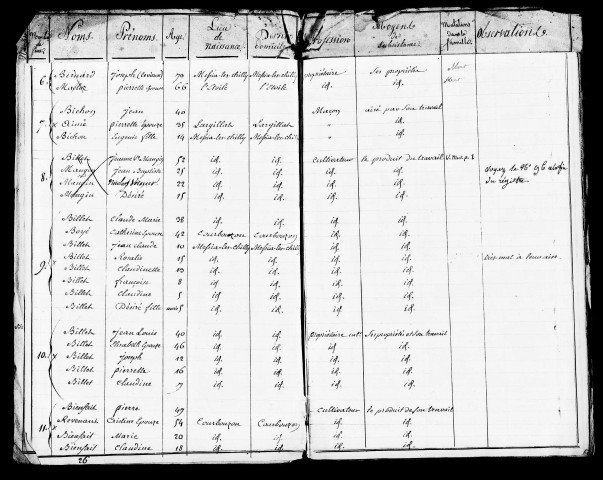 Noms. Prénoms. Age. Lieu de naissance. Dernier domicile. Profession Moyens de subsistance. Mutations dans les familles. Observations.
6. Bernard Joseph 70 Messia-les-chilly Messia-les-chilly propriétaire Ses propriétés Mort
pierrette Epouse 66 l'Etoile l'Etoile id. id. Mort
Bichon Jean 40 Maçon aisé par son travail
7. pierrette Epouse 35 Largillat Largillat " id.
Bichon Eugenie fille 14 Messia-les-chilly Messia-les-chilly " id.
Billet Jeanne Ve Maugin 52 id. id. Cultivateur le produit du travail
Maugin Jean Baptiste 25 id. id. id. id.
8. Maugin 22 id. id. id. id.
Maugin Désiré 15 id. id. id. id.
du registre
Billet Claude Marie 38 id. id. id. id.
Boyé Catherine Epouse 42 Courbouzon Courbouzon id. id.
Billet Jean claude 10 Messia-les-chilly Messia-les-chilly id. id.
9. Billet Rosalie 15 id. id. id. id.
Billet Claudinette 13 id. id. id. id.
Billet françoise 8 id. id. id. id.
Billet Claudine 5 id. id. id. id.
Billet Désiré fille 5 id. id. id. id.
Billet Jean Louis 40 id. id. propriétaire cult. Ses propriétés et son travail
Billet Elisabeth Epouse 46 id. id. id. id.
10. Billet Joseph 12 id. id. id. id.
Billet pierrette 16 id. id. id. id.
Billet Claudine 7 id. id. id. id.
Bienfait pierre 49 Cultivateur le produit de son travail
11. Cristine Epouse 54 Courbouzon Courbouzon id. id.
Bienfait Marie 20 id. id. id. id.
Bienfait Claudine 18 id. id. id. id.
26